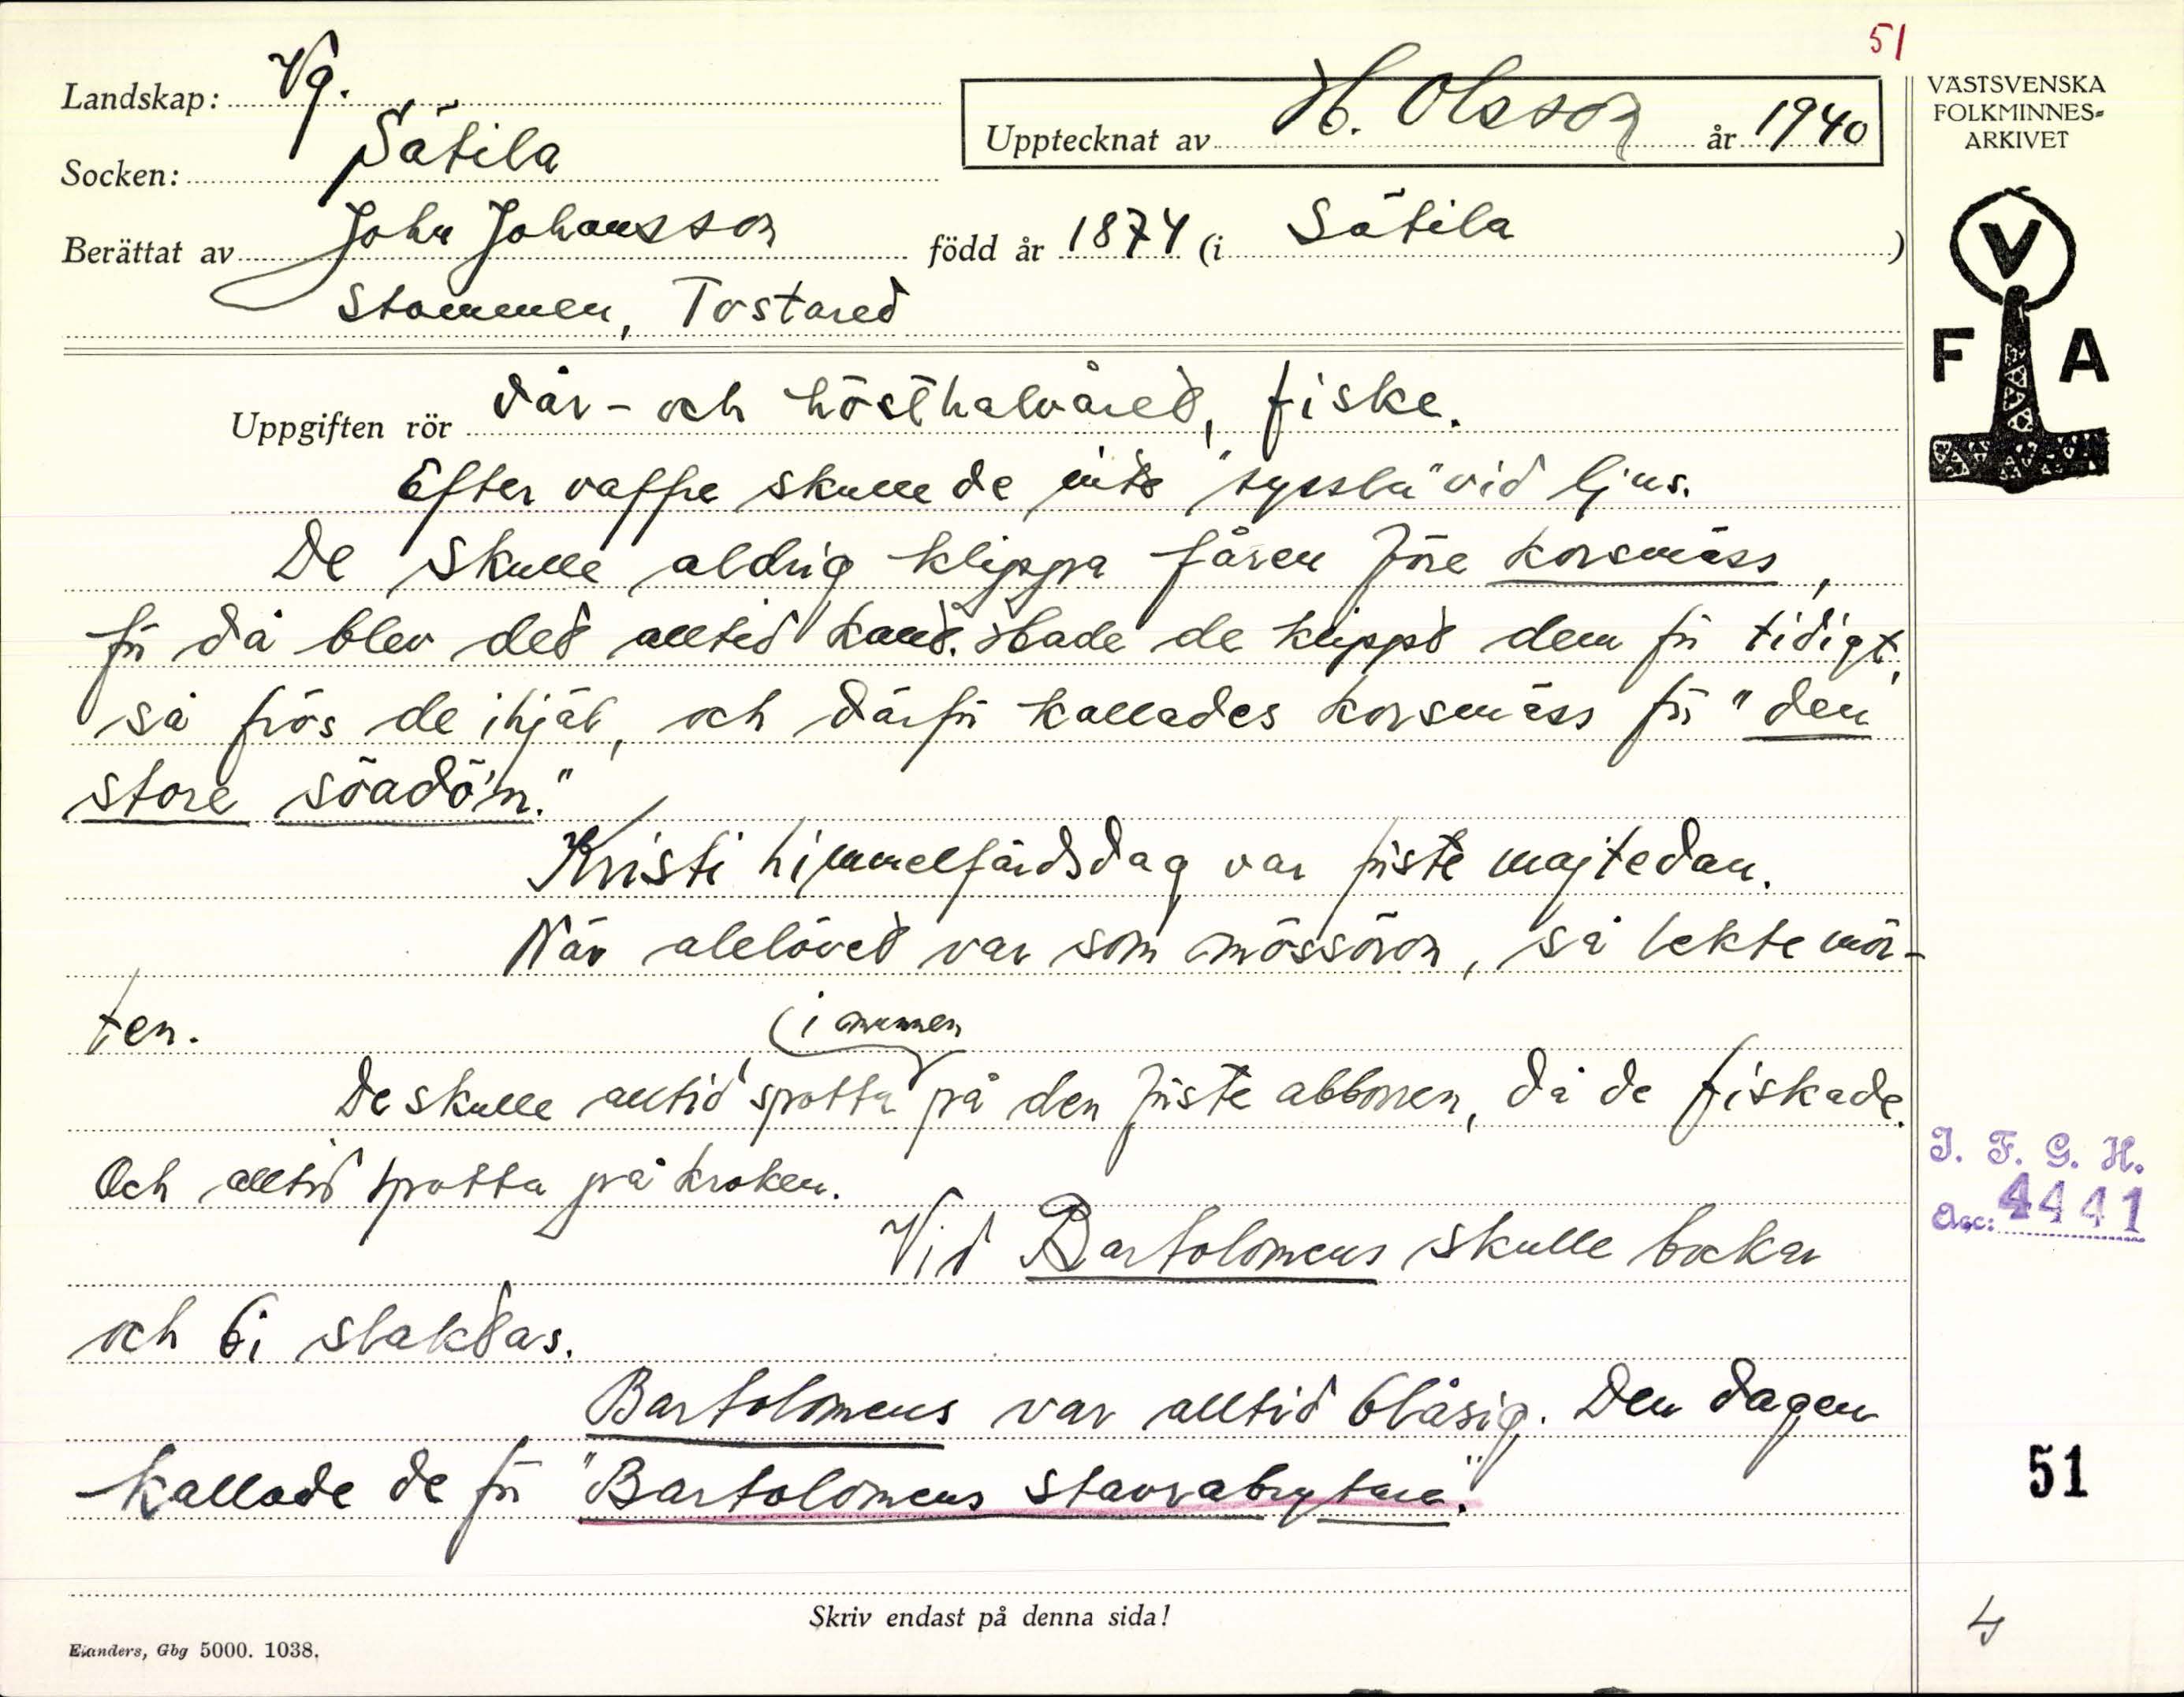 51
Landskap: Vg.
Upptecknat av H. Olsson år 1940
VÄSTSVENSKA
FOLKMINNES=
ARKIVET
Socken: Sätila
Berättat av John Johansson född år 1874 (i Sätila)
Stommen, Tostared
V
F A
Uppgiften rör Vår- och hösthalvåret, fiske.
Efter vaffre skulle de inte "syssla" vid ljus.
De skulle aldrig klippa fåren före korsmäss,
för då blev det alltid kallt. Hade de klippt dem för tidigt,
så frös de ihjäl, och därför kallades korsmäss för "den
store söadö'n."
Kristi himmelfärdsdag var förste majtedan.
När alelövet var som mössöron, så lekte mör-
ten.
(i munnen
De skulle alltid spotta på den förste abborren, då de fiskade.
Och alltid spotta på kroken.
I. F. G. H.
Acc: 4441
Vid Bartolomeus skulle bockar
och bi slaktas.
Bartolomeus var alltid blåsig. Den dagen
kallade de för "Bartolomeus stavrabrytare."
51
Skriv endast på denna sida!
4
Elanders, Gbg 5000. 1038.